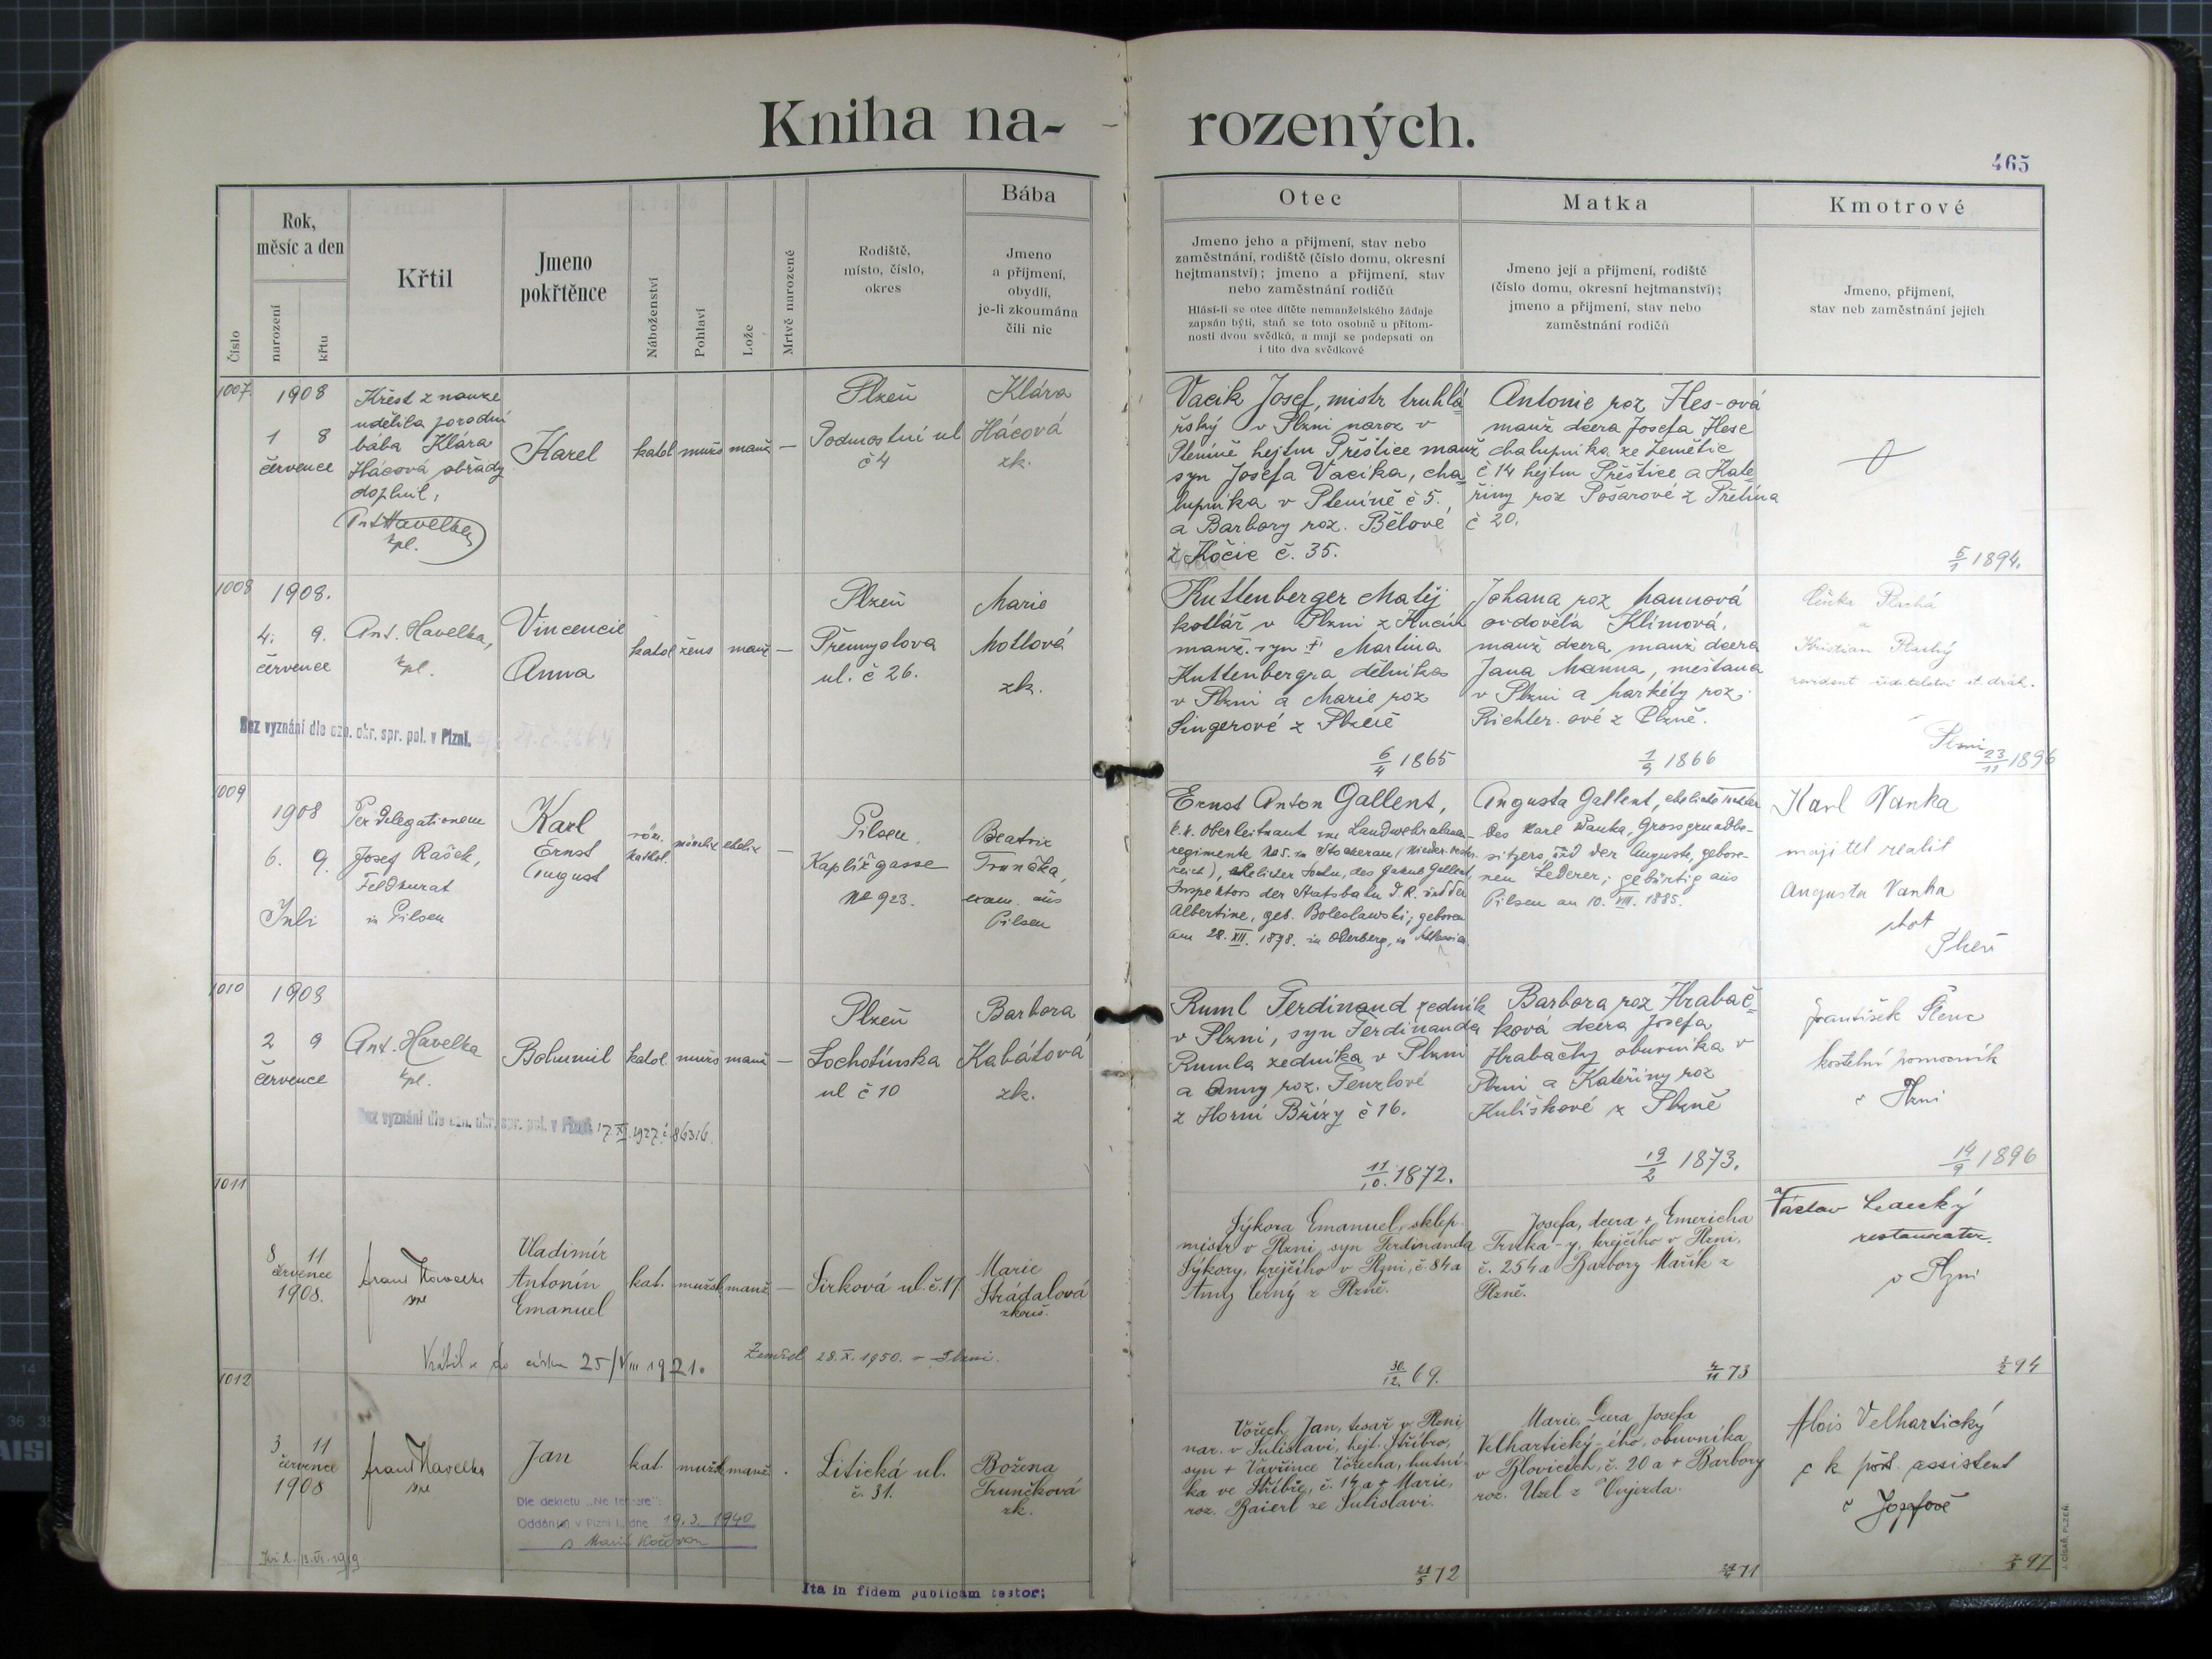 Kniha na-
rozených.
465
Číslo
Rok,
měsíc a den
narození
křtu
Křtil
Jmeno
pokřtěnce
Náboženství
Pohlaví
Lože
Mrtvě narozené
Rodiště,
místo, číslo,
okres
Bába
Jmeno
a příjmení,
obydlí,
je-li zkoumána
čili nic
Otec
Jmeno jeho a přijmení, stav nebo
zaměstnání, rodiště (číslo domu, okresní
hejtmanství); jmeno a přijmení, stav
nebo zaměstnání rodičů
Hlásí-li se otec dítěte nemanželského žádaje
zapsán býti, staň se toto osobně u přítom-
nosti dvou svědků, a mají se podepsati on
i tito dva svědkové
Matka
Jmeno její a přijmení, rodiště
(číslo domu, okresní hejtmanství);
jmeno a přijmení, stav nebo
zaměstnání rodičů
Kmotrové
Jmeno, přijmení,
stav neb zaměstnání jejich
1007.
1908
1 8
července
Křest z nouze
udělila porodní
bába Klára
Hácová obřady
doplnil,
Ant Havelka
kpl.
Karel
katol
mužs
manž
—
Plzeň
Podmostní ul
č 4
Klára
Hácová
zk.
Vacik Josef, mistr truhlá-
řský v Plzni naroz v
Pleníně hejtm Přeštice manž
syn Josefa Vacika, cha-
lupníka v Pleníně č 5.,
a Barbory roz. Bělové
z Kočic č. 35.
Antonie roz Hes-ová
manž dcera Josefa Hese
chalupníka ze Žemětic
č 14 hejtm Přeštice a Kate-
řiny roz Pošarové z Přetína
č 20.
5/1 1894.
1008
1908.
4. 9.
července
Ant. Havelka,
kpl.
Vincencie
Anna
katol
žens
manž
—
Plzeň
Přemyslova
ul. č 26.
Marie
Mottlová
zk.
Kuttenberger Matěj
kotlář v Plzni
manž. syn † Martina
Kuttenbergra dělníka
v Plzni a Marie roz
Singerové z Plzně
6/4 1865
Johana roz Mannová
ovdovělá Klimová,
manž dcera manž dcera
Jana Manna, měšťana
v Plzni a Markéty roz.
Richter-ové z Plzně.
1/9 1866
Plachá
a
Kristian Plachý
Plzni
23/11 1896
Bez vyznání dle ozn. okr. spr. pol. v Plzni.
1009
1908
6. 9.
Juli
Per delegationem
Josef Rašek,
Feldkurat
in Pilsen
Karl
Ernst
August
röm.
kathol.
männlich
ehelich
—
Pilsen
Kaplířgasse
No 923.
Beatrix
Trunčka,
exam. aus
Pilsen
Ernst Anton Gallent,
k.k. Oberleitnant im Landwehrulanen-
regimente No 5. in Stockerau (Nieder-Oester-
reich), ehelicher Sohn, des Jakob Gallent,
Inspektors der Statsbahn i. R. und der
Albertine, geb. Boleslawski; geboren
am 28. XII. 1878. in Oderberg, in Schlesien.
Augusta Gallent, eheliche Tochter
des Karl Wanka, Grossgrundbe-
sitzers, und der Auguste, gebore-
nen Lederer; gebürtig aus
Pilsen am 10. VIII. 1885.
Karl Vanka
majitel realit
Augusta Vanka
choť
Plzeň
1010
1908
2 9
července
Ant. Havelka
kpl.
Bohumil
katol.
mužs
manž
—
Plzeň
Lochotínska
ul č 10
Barbora
Kabátová
zk.
Ruml Ferdinand zedník
v Plzni, syn Ferdinanda
Rumla zedníka v Plzni
a Anny roz. Fenzlové
z Horní Břízy č 16.
11/10. 1872.
Barbora roz Hrabač-
ková dcera Josefa
Hrabačky obuvníka v
Plzni a Kateřiny roz
Kuliškové z Plzně
19/2 1873.
František Šlenc
kostelní pomocník
v Plzni
14/9 1896
Bez vyznání dle ozn. okr. spr. pol. v Plzni 17.XI.1927. č. 86316.
1011
8 11
července
1908.
Frant Havelka
Vladimír
Antonín
Emanuel
kat.
mužsk
manž.
—
Sirková ul. č. 17
Marie
Strádalová
zkouš.
Sýkora Emanuel, sklep.
mistr v Plzni, syn Ferdinanda
Sýkory, krejčího v Plzni, č 84 a
Anny Černý z Plzně.
30/12. 69.
Josefa, dcera † Emericha
Trnka-y, krejčího v Plzni,
č. 254 a Barbory Mařík z
Plzně.
4/11 73
Václav Lanský
restauratér
v Plzni
1/2 94
Vrátil se do církve 25/VIII 1921.
Zemřel 28.X.1950. v Plzni.
1012
3 11
července
1908
Frant Havelka
Jan
kat.
mužsk
manž.
Litická ul.
č. 31.
Božena
Trunčková
zk.
Vořech Jan, tesař v Plzni,
nar. v Sulislavi, hejt. Stříbro,
syn † Vavřince Vořecha, hutní-
ka ve Stříbře, č. 14 a † Marie,
roz. Baierl ze Sulislavi.
21/5 72
Marie, dcera Josefa
Velhartický-ého, obuvníka
v Blovicích, č. 20 a † Barbory
roz. Uzel z Vujezda.
29/4 71
Alois Velhartický
c k pošt. assistent
v Josefově
7/3 97
Dle dekretu „Ne temere":
Oddán v Plzni I., dne 19. 3. 1940
s Marií
13.VI.1919
Ita in fidem publicam testor:
J. CÍSAŘ, PLZEŇ.